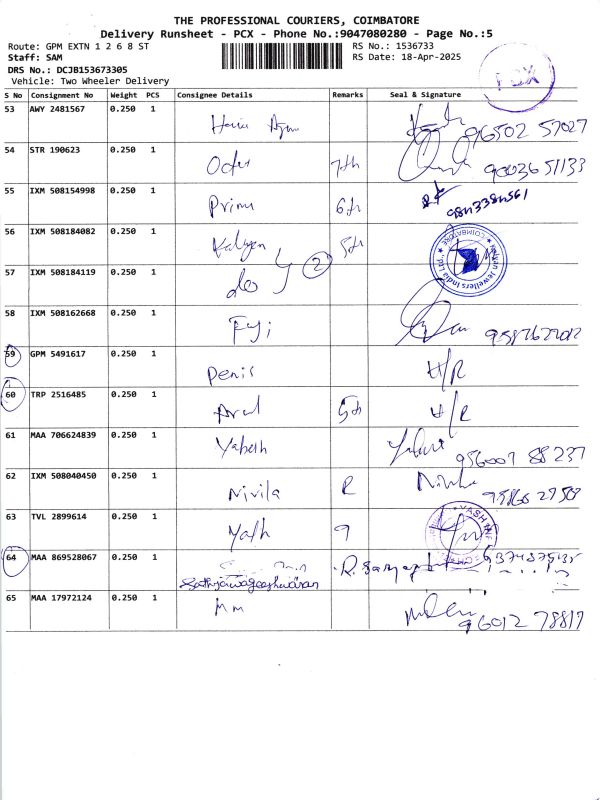 THE PROFESSIONAL COURIERS, COIMBATORE
Delivery Runsheet - PCX - Phone No.:9047080280 - Page No.:5
Route: GPM EXTN 1 2 6 8 ST RS No.: 1536733
Staff: SAM RS Date: 18-Apr-2025
DRS No.: DCJB153673305
Vehicle: Two Wheeler Delivery
PCX
S No Consignment No Weight PCS Consignee Details Remarks Seal & Signature
53 AWY 2481567 0.250 1 96502 57027
54 STR 190623 0.250 1 7th 90036 51133
55 IXM 508154998 0.250 1 Prima 6th
56 IXM 508184082 0.250 1 Kalyan 5th Kalyan Jewellers India Ltd. COIMBATORE
57 IXM 508184119 0.250 1 do 2
58 IXM 508162668 0.250 1 Fuji
59 GPM 5491617 0.250 1 Denis H/R
60 TRP 2516485 0.250 1 Arul 5th H/R
61 MAA 706624839 0.250 1 Yabesh 956007 88237
62 IXM 508040450 0.250 1 Nivila R
63 TVL 2899614 0.250 1 Yash 9 YASH
64 MAA 869528067 0.250 1
65 MAA 17972124 0.250 1 mm 96012 78817